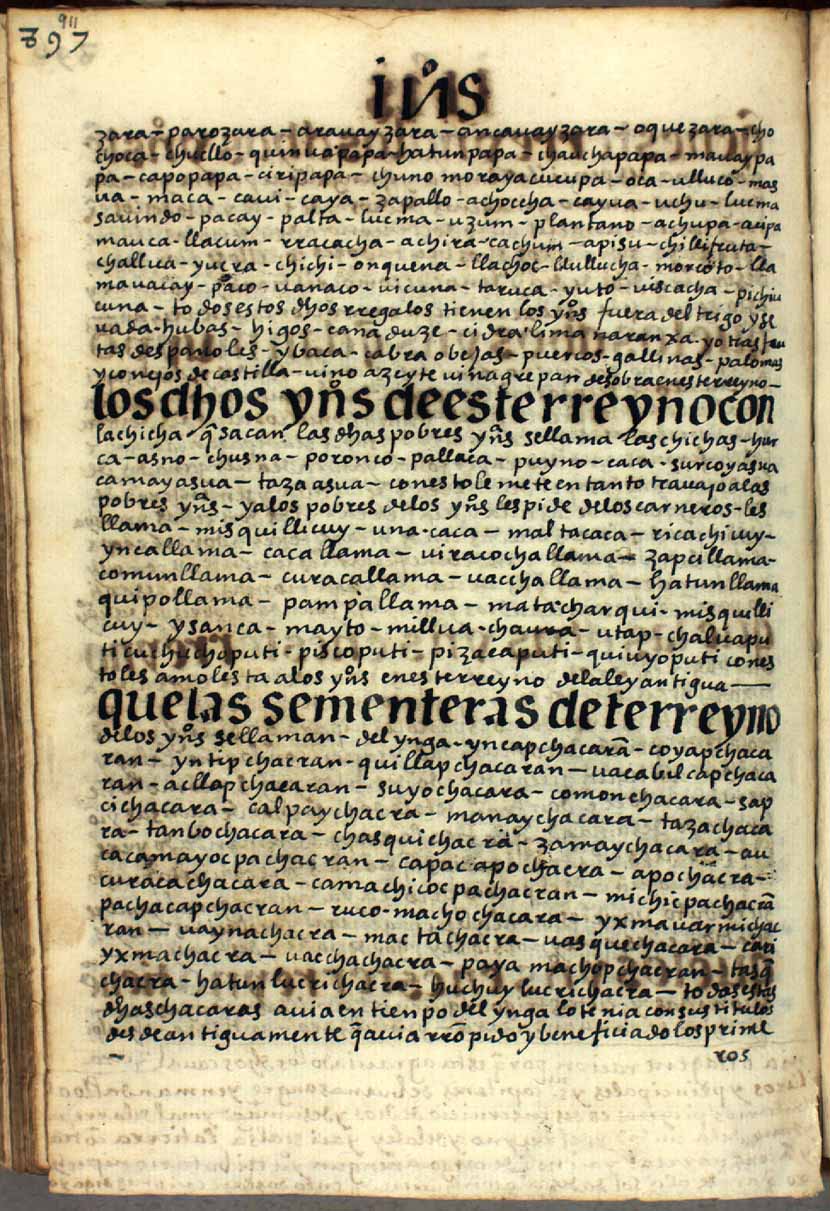 911
897
ynºs
zara - parozara - arauay zara - ancauay zara - oque zara - cho
choca - chuello - quinua papa - hatun papa - chaucha papa - mauay pa
pa - capo papa - ciri papa - chuno moraya cucupa - oca - ulluco - mas
ua - maca - caui - caya - zapallo - achoccha - cayua - uchu - lucma
sauindo - pacay - palta - lucma - uzum - plantano - achupa - acipa
mauca - llacum - rracacha - achira - cachum - apisu - chilli fruta -
challua - yucra - chichi - onquena - llachoc - llullucha - morcoto - lla
ma uacay - paco - uanaco - uicuna - taruca - yuto - uiscacha - pichiu
cuna - todos estos dhos rregalos tienen los ynºs fuera del trigo y se
uada - hubas - higos - cana duze - cidra lima naranxa - y otras fru
tas despanoles - y baca - cabra obejas - puercos - gallinas - palomas
y conejos de castilla - uino azeyte uinagre pan de sobra en esterreyno -
los dhos ynºs de este rreyno con
la chicha q̃ sacan las dhas pobres ynªs se llama las chichas - hur
ca - asno - chusna - poronco - pallaca - puyno - caca - surcoy asua
camay asua - taza asua - con esto le mete en tanto trauajo a las
pobres ynªs - y a los pobres de los ynºs les pide de los carneros - les
llama - misquillicuy - una - caca - maltacaca - ricachiuuy -
ynca llama - caca llama - uiracocha llama - zapci llama -
comun llama - curaca llama - uaccha llama - hatun llama
quipo llama - pampa llama - mata charqui - misquilli
cuy - ysanca - mayto - millua - chaura - utap - chalua pu
ti cuchucho puti - pisco puti - pizaca puti - quiuyo puti con es
to les amolesta a los ynºs en este rreyno de la ley antigua
que las sementeras deterreyno
de los ynºs se llaman - del ynga - yncap chacarã - coyap chaca
ran - yntip chacran - quillap chacaran - uacabilcap chaca
ran - acllap chacaran - suyo chacara - comon chacara - sap
ci chacara - calpay chacra - manay chacara - taza chaca
ra - tanbo chacara - chasqui chacra - zamay chacara - au
cacamayocpa chacran - capac apo chacra - apo chacra -
curaca chacara - camachicocpa chacran - michicpa chacrã
pachacap chacran - ruco - macho chacara - yxma uarmi chac
ran - uayna chacra - macta chacra - uasque chacara - cari
yxma chacra - uaccha chacra - paya machop chacran - tasq̃
chacra - hatun lucri chacra - huchuy lucri chacra - todos estas
dhas chacaras auia en tienpo del ynga lo tenia con sus titulos
desde antiguamente q̃ auia rronpido y beneficiado los prime
ros